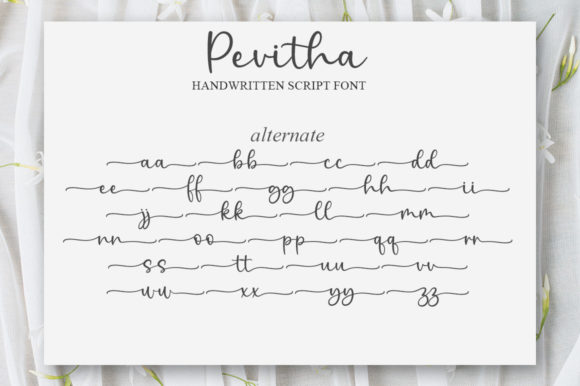 Pevitha
HANDWRITTEN SCRIPT FONT
alternate
aa bb cc dd
ee ff gg hh ii
jj kk ll mm
nn oo pp qq rr
ss tt uu vv
ww xx yy zz